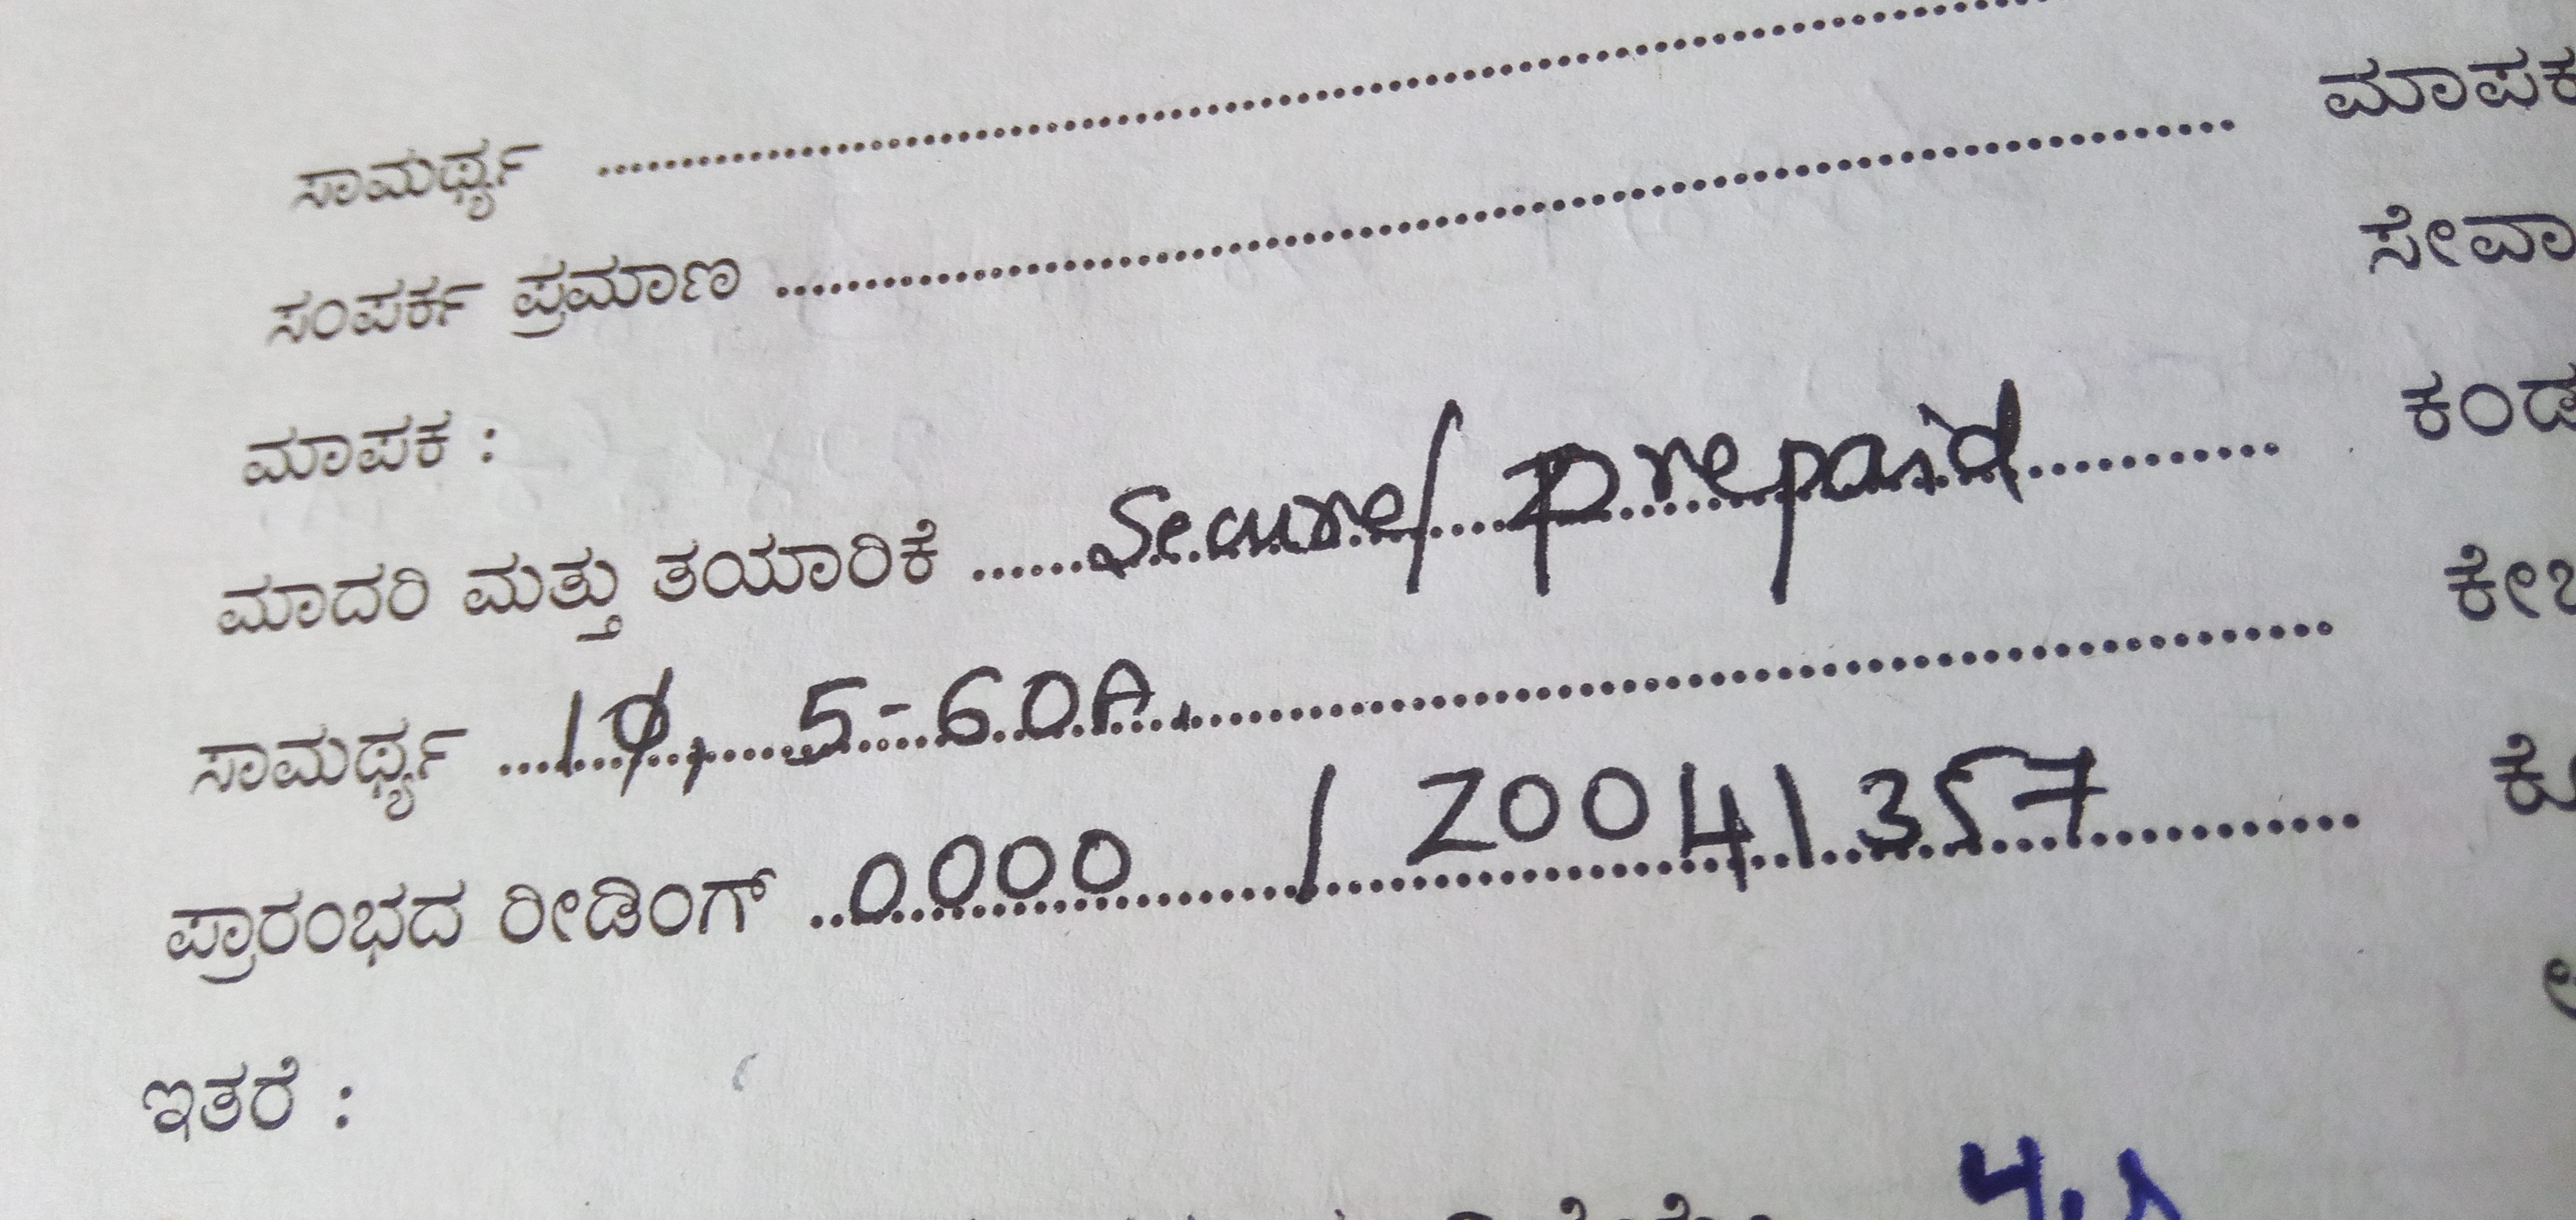 ಸಾಮರ್ಥ್ಯ ........................................
ಸಂಪರ್ಕ ಪ್ರಮಾಣ ........................................ ಮಾಪಕ
ಮಾಪಕ : ಸೇವಾ
ಮಾದರಿ ಮತ್ತು ತಯಾರಿಕೆ ...... Secure/ Prepaid ........... ಕಂಡ
ಸಾಮರ್ಥ್ಯ ... 1φ, 5-60A. ........................................
ಪ್ರಾರಂಭದ ರೀಡಿಂಗ್ .. 0000 / 20041357 ...........
ಇತರೆ :